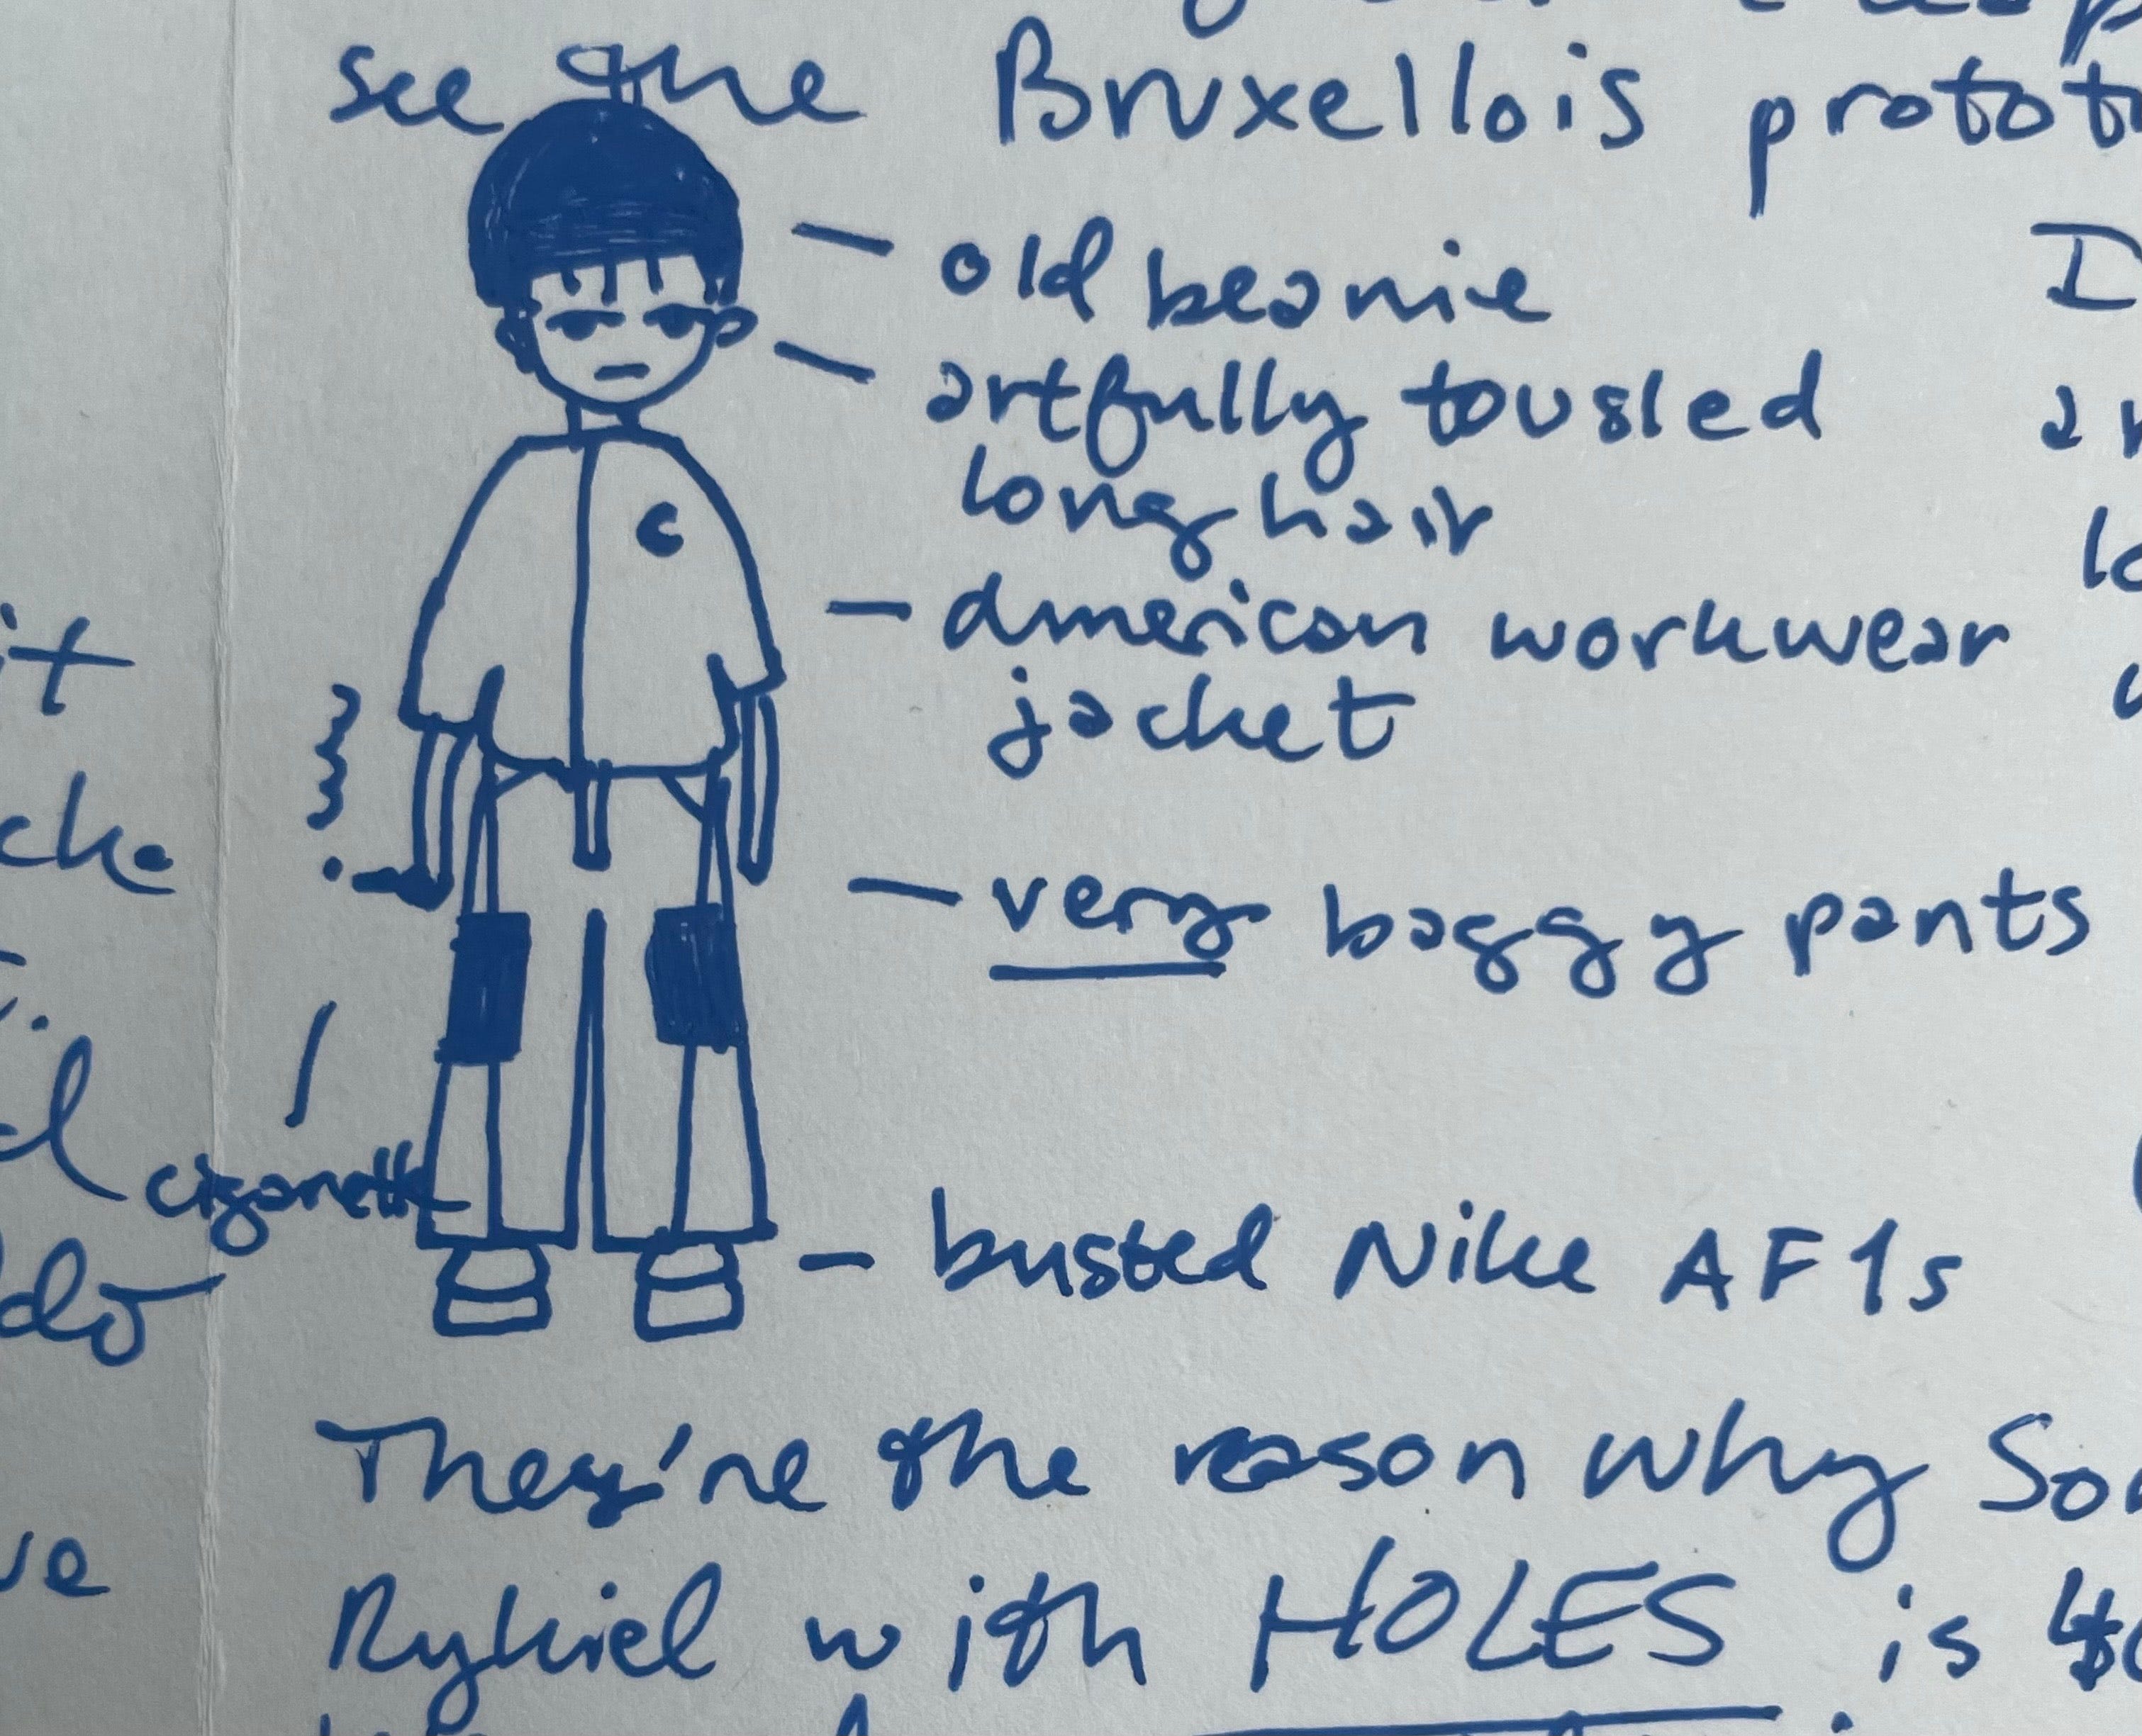 see the Bruxellois
old beanie
artfully tousled
long hair
american workwear
jacket
very baggy pants
cigarette
busted Nike AF1s
They're the reason why
Rykiel with HOLES is
it
do
c
I